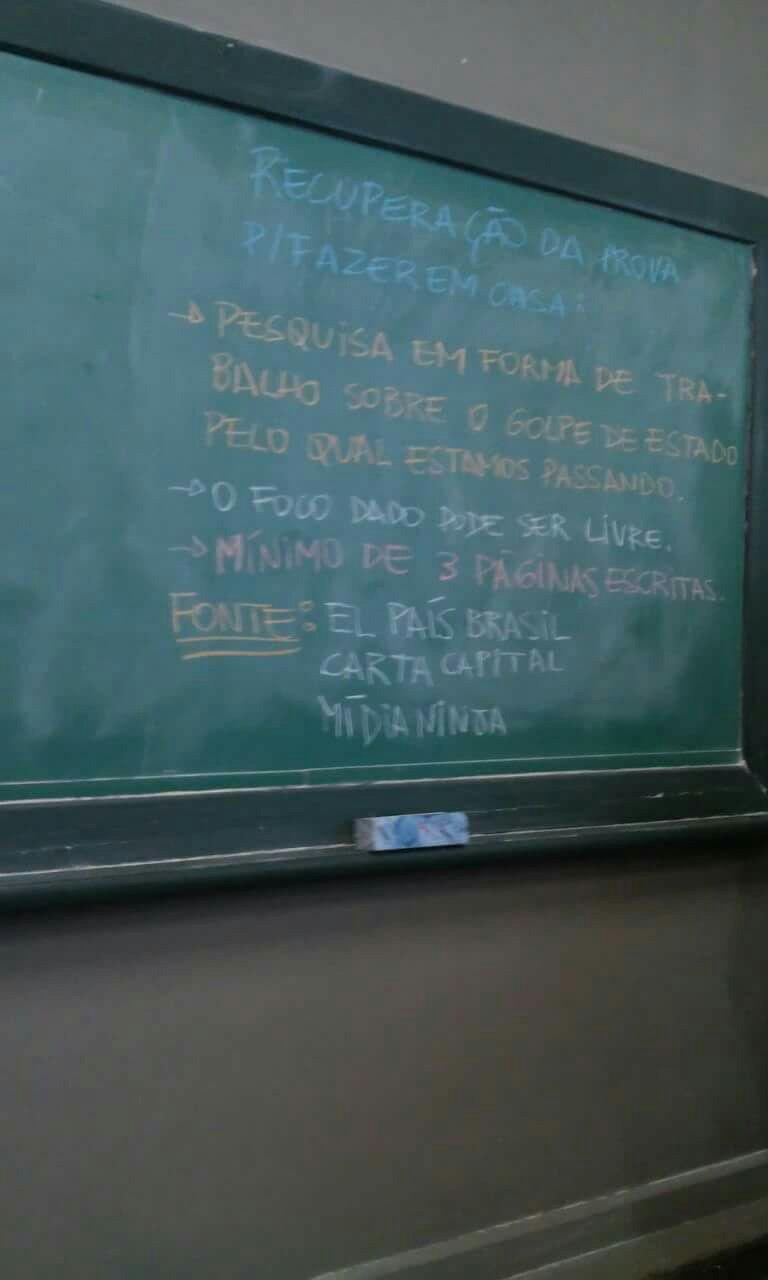 RECUPERAÇÃO DA PROVA
P/ FAZER EM CASA:
→ PESQUISA EM FORMA DE TRA-
BALHO SOBRE O GOLPE DE ESTADO
PELO QUAL ESTAMOS PASSANDO.
→ O FOCO DADO PODE SER LIVRE.
→ MÍNIMO DE 3 PÁGINAS ESCRITAS.
FONTE: EL PAÍS BRASIL
CARTA CAPITAL
MÍDIA NINJA